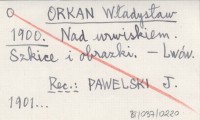 ORKAN Władysław
1900. Nad urwiskiem.
Szkice i obrazki. – Lwów.
Rec.: PAWELSKI J.
1901...